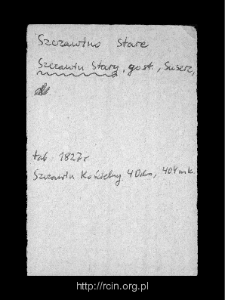 Szczawino Stare
Szczawin Stary, gost., Suserz,
tab. 1827 r
Szczawin Kościelny 40 dm, 404 mk.
http://rcin.org.pl